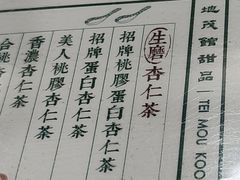 地茂館甜品 | TEI MOU KOO
生磨杏仁茶
招牌蛋白杏仁茶
招牌桃膠杏仁茶
美人桃膠杏仁茶
香濃杏仁茶
合桃杏仁茶